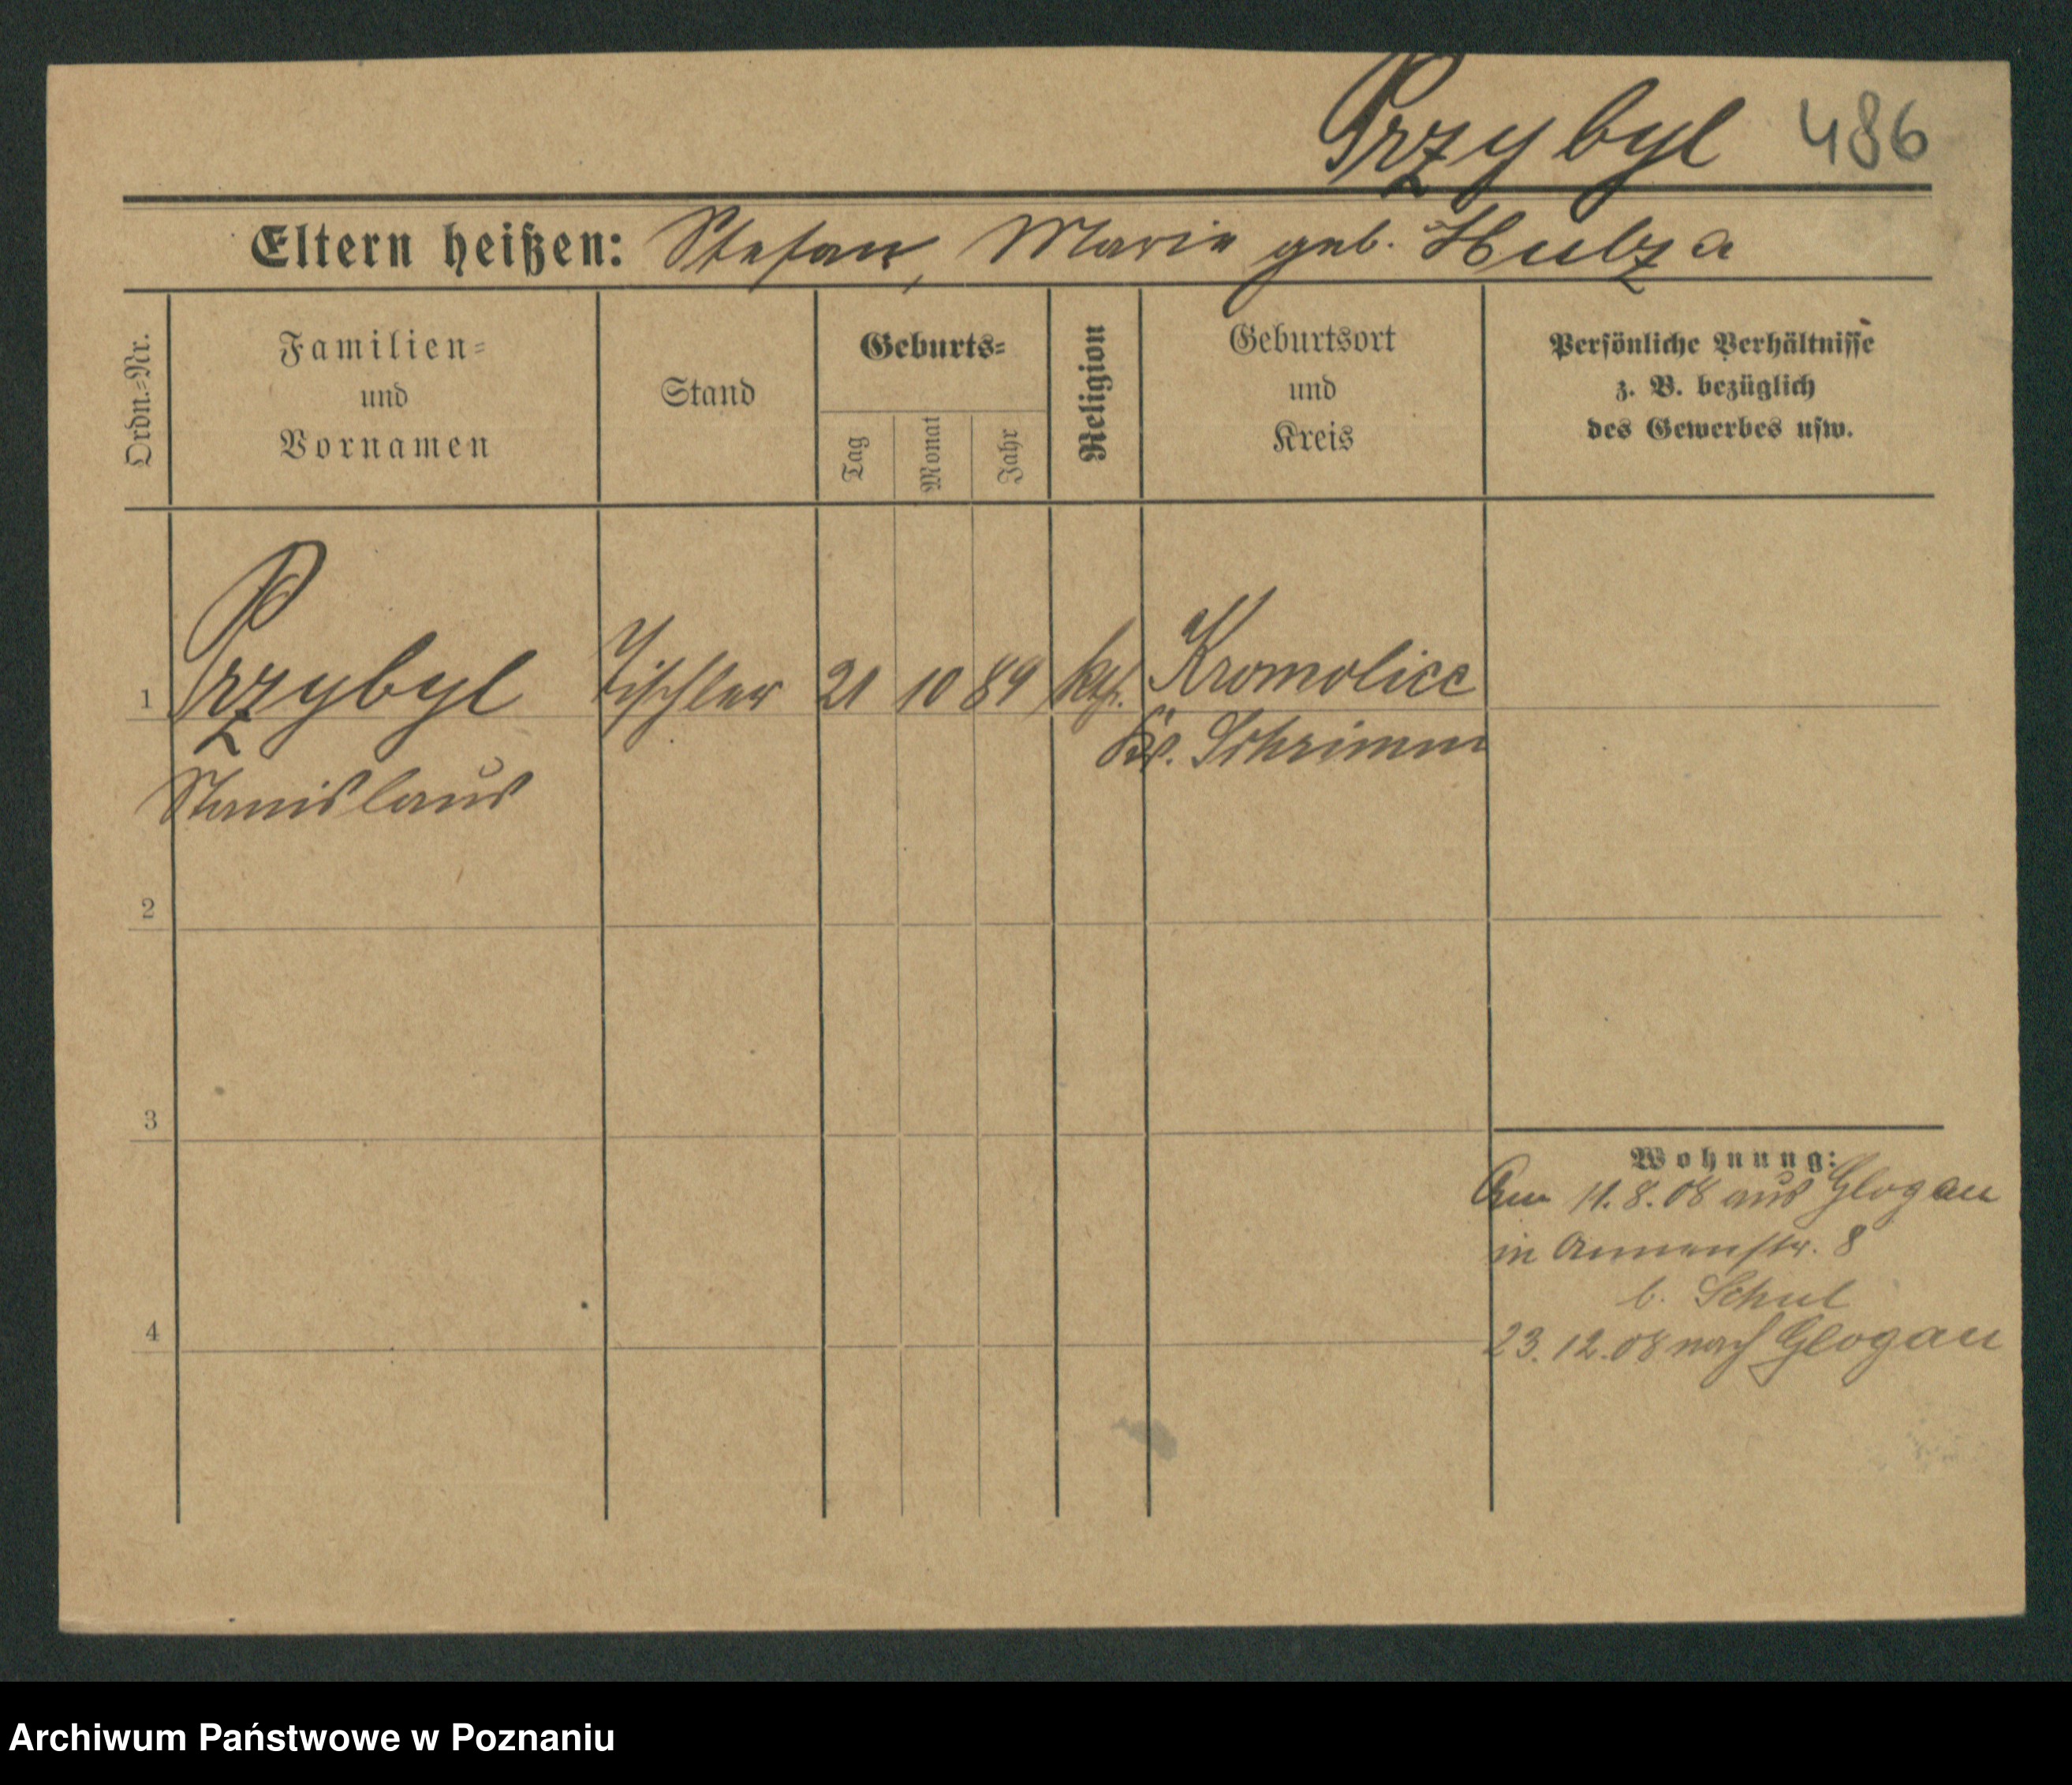 Przybyl 486
Eltern heißen: Stefan, Marie geb. Hulza
Ordn.-Nr.
Familien-
und
Vornamen
Stand
Geburts-
Tag
Monat
Jahr
Religion
Geburtsort
und
Kreis
Persönliche Verhältnisse
z. B. bezüglich
des Gewerbes usw.
1 Przybyl Tischler 21 10 89 kth. Kromolice
Kr. Schrimm
Stanislaus
2
3
Wohnung:
Am 11.8.08 aus Glogau
in Annenstr. 8
b. Schul
4
23.12.08 nach Glogau
Archiwum Państwowe w Poznaniu